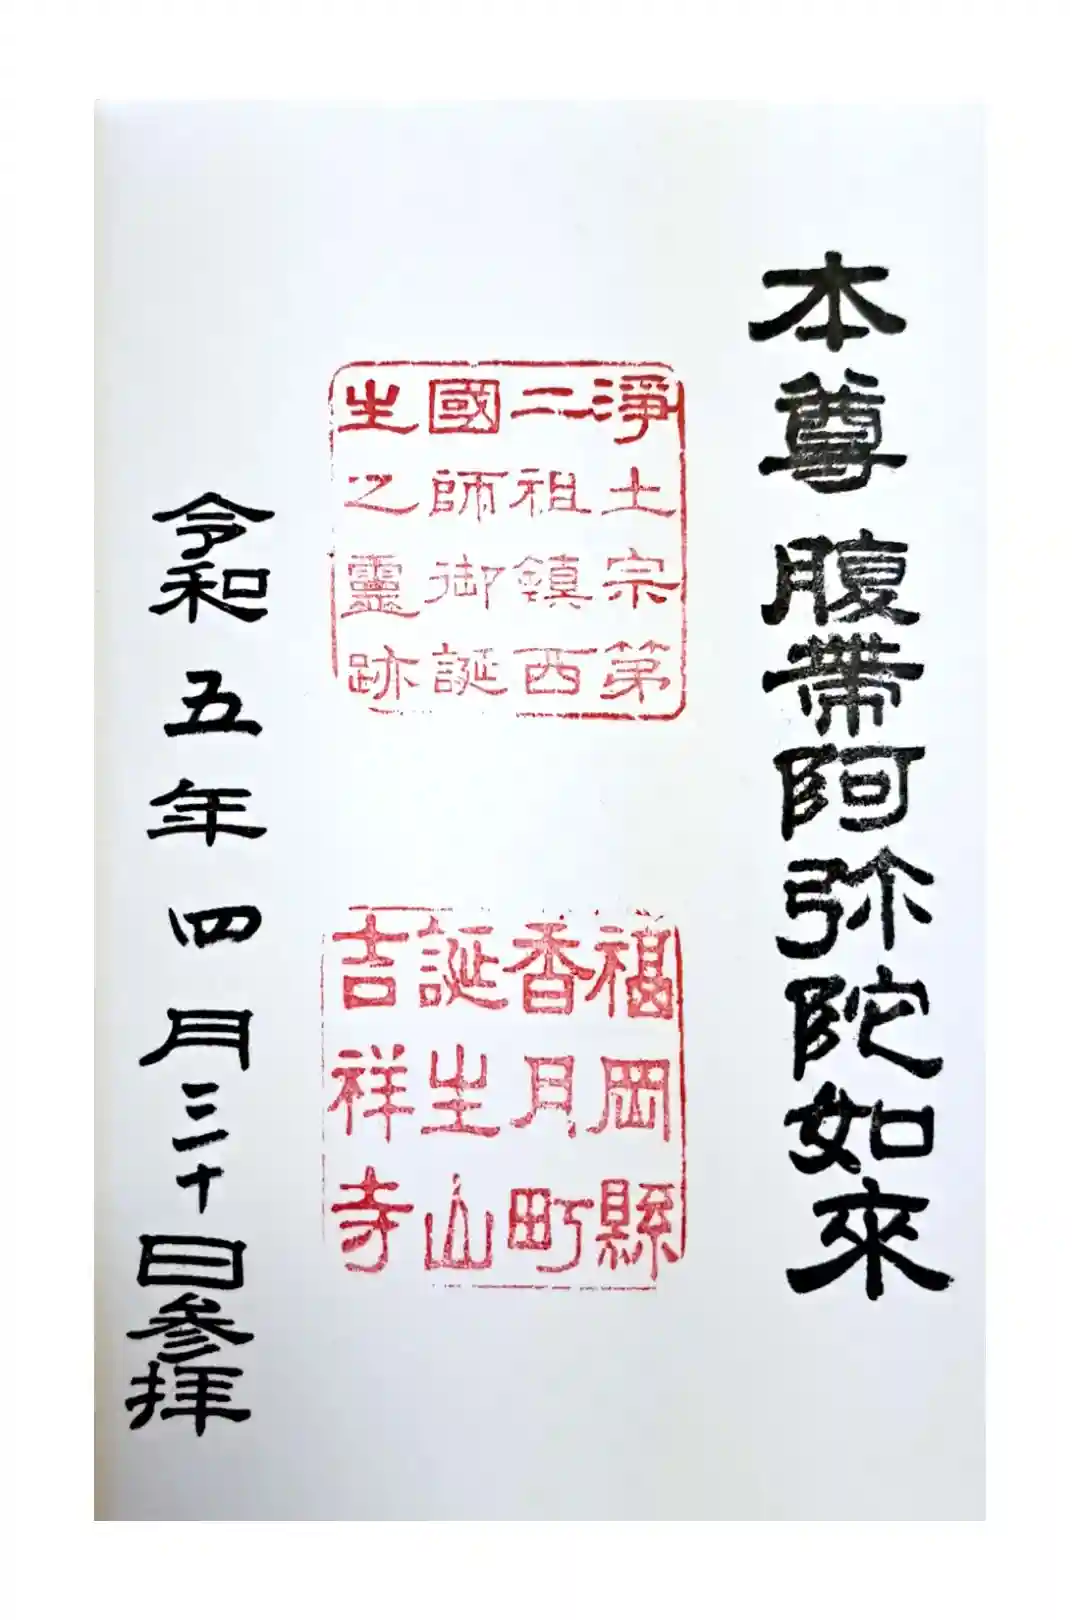 本尊 腹帶阿弥陀如來
淨土宗第
二祖鎮西
國師御誕
生之靈跡
福岡縣
香月町
誕生山
吉祥寺
令和五年四月三十日參拝